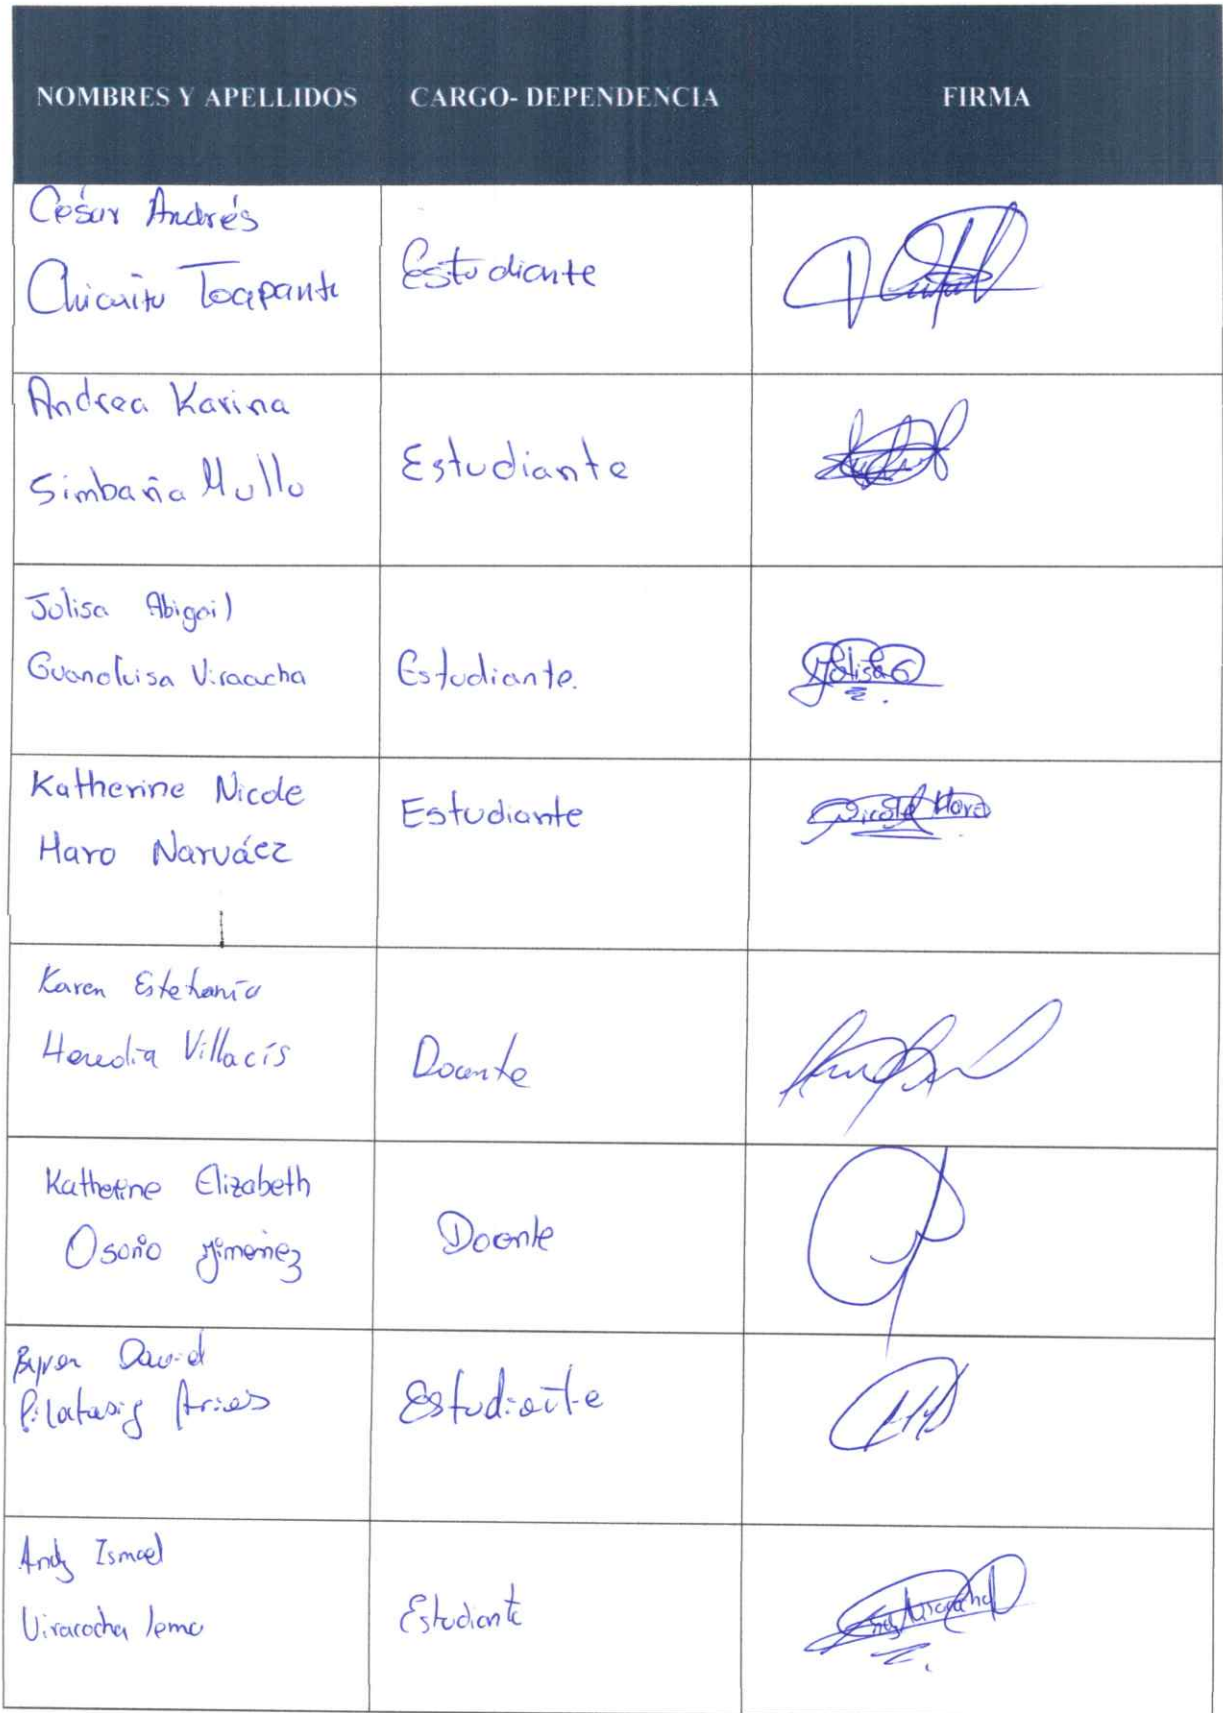 NOMBRES Y APELLIDOS CARGO- DEPENDENCIA FIRMA
César Andrés
Chicaito Tocapante
Estudiante
Andrea Karina
Simbaña Mullo
Estudiante
Julisa Abigail
Guanoluisa Viracocha
Estudiante.
Julisa G
Katherine Nicole
Haro Narváez
Estudiante
Nicole Haro
Karen Estefanía
Heredia Villacís
Docente
Katherine Elizabeth
Osorio Jiménez
Docente
Byron David
Pilatasig Arias
Estudiante
Andy Ismael
Viracocha Lema
Estudiante
Andy Viracocha